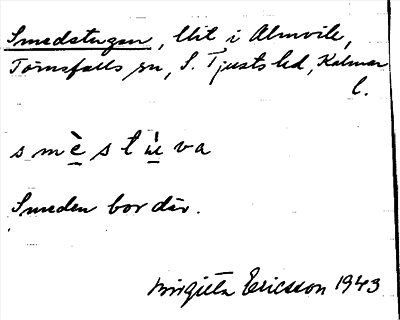 Smedstugan, lht i Almvik,
Törnsfalls sn, S. Tjusts hd, Kalmar
l.
s m è s t ù v a
Smeden bor där.
Birgitta Ericsson 1943